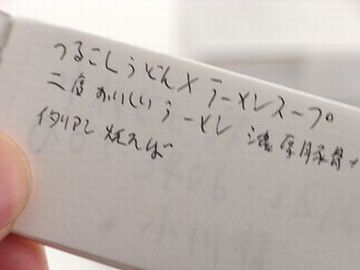 つるこしうどん×ラーメンスープ
二度おいしいラーメン 濃厚豚骨
イタリアン